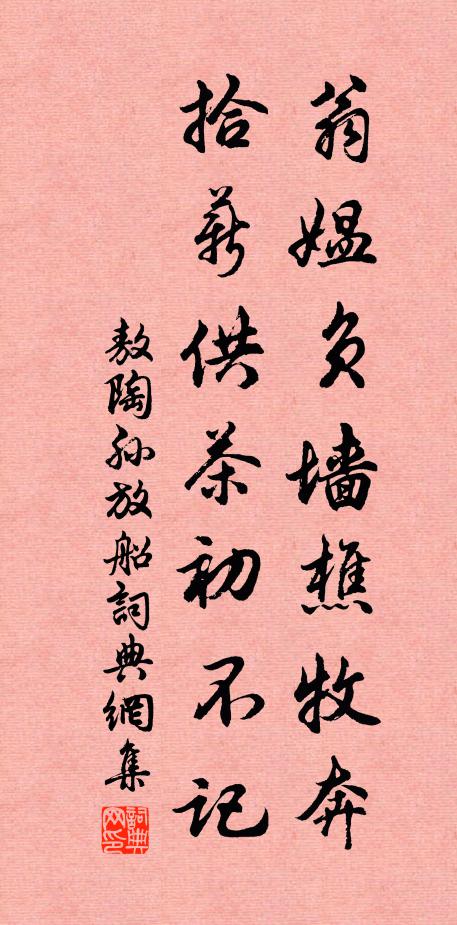 翁媪负墙樵牧奔
拾薪供茶初不记
敖陶孙放船詞典網集
詞典网印